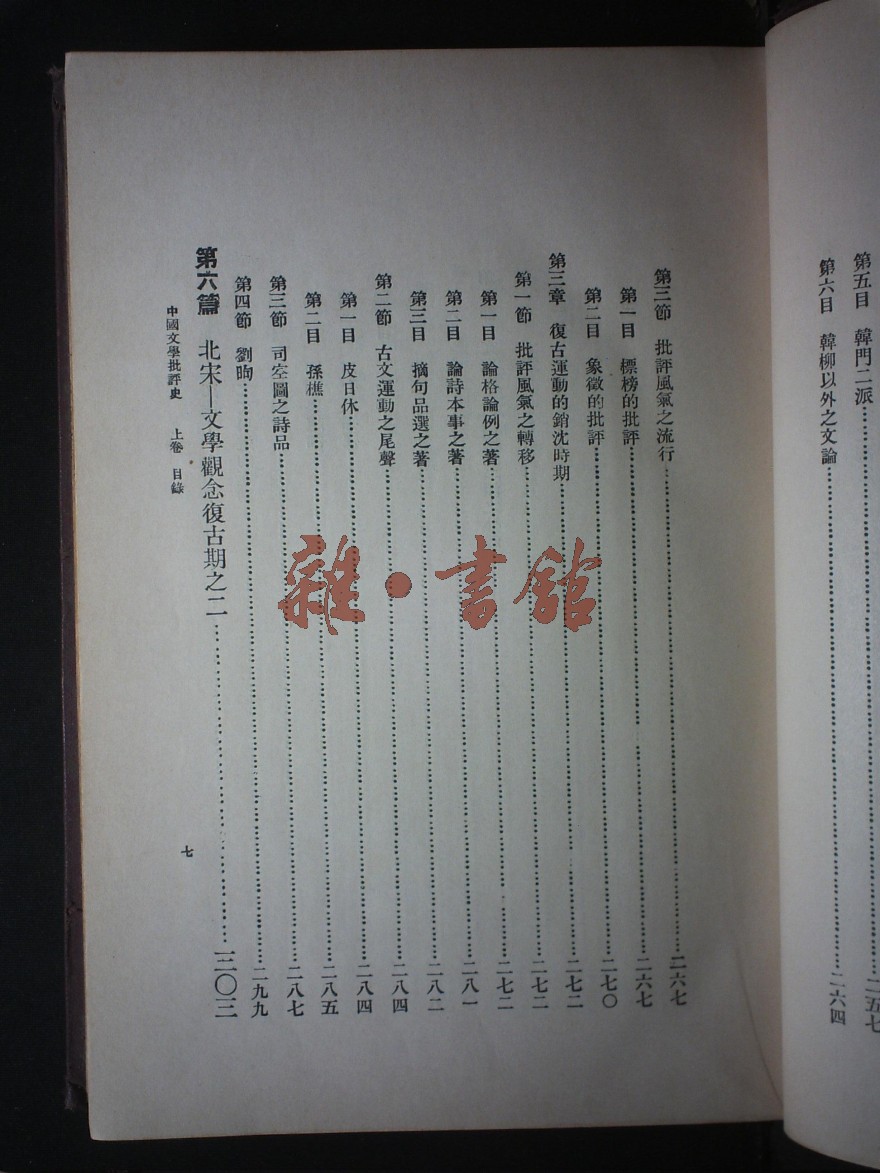 第五目　韓門二派……二五七
第六目　韓柳以外之文論……二六四
第三節　批評風氣之流行……二六七
第一目　標榜的批評……二六七
第二目　象徵的批評……二七〇
第三章　復古運動的銷沈時期……二七二
第一節　批評風氣之轉移……二七二
第一目　論格論例之著……二七二
第二目　論詩本事之著……二八一
第三目　摘句品選之著……二八二
第二節　古文運動之尾聲……二八四
第一目　皮日休……二八四
第二目　孫樵……二八五
第三節　司空圖之詩品……二八七
第四節　劉昫……二九九
第六篇　北宋—文學觀念復古期之二……三〇三
中國文學批評史　上卷　目錄
七
雜·書館